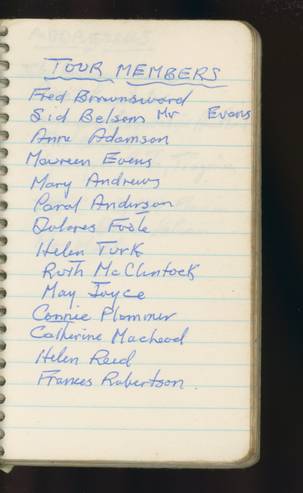 TOUR MEMBERS
Fred Brownsword
Sid Belsom Mr Evans
Anne Adamson
Maureen Evens
Mary Andrews
Paral Anderson
Dolores Foote
Helen Turk
Ruth McClintock
May Joyce
Connie Plommer
Catherine Macleod
Helen Reed
Frances Robertson.